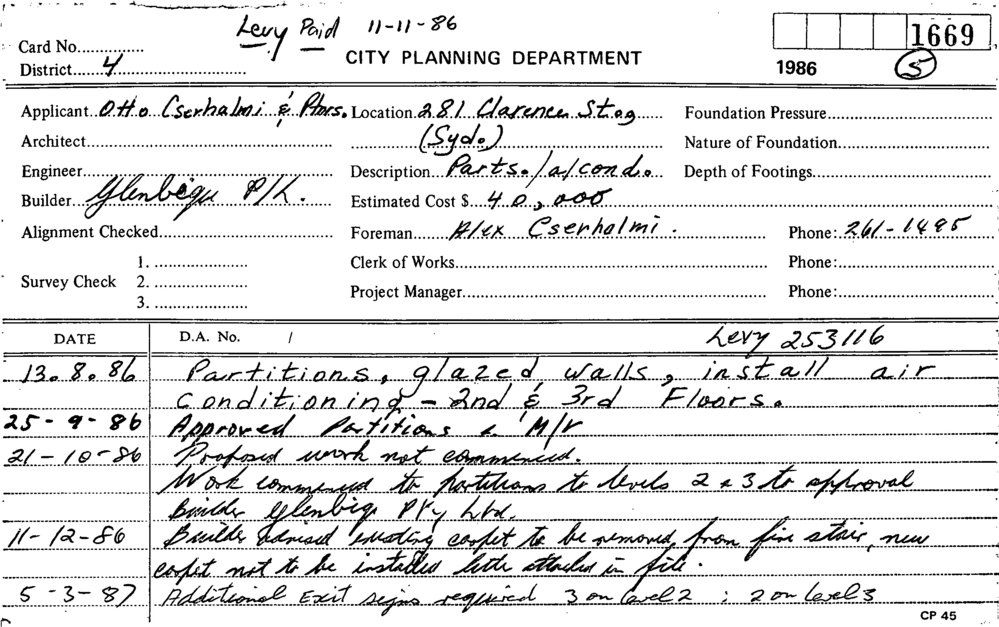 Levy Paid 11-11-86
1669
Card No.
CITY PLANNING DEPARTMENT
District 4
1986
5
Applicant Otto Cserhalmi & Ptnrs. Location 281 Clarence St. Foundation Pressure
Architect (Syd.) Nature of Foundation
Engineer Description Parts./a/cond. Depth of Footings
Builder Glenbigu P/L. Estimated Cost $ 40,000
Alignment Checked Foreman Alex Cserhalmi. Phone: 261-1495
1. Clerk of Works Phone:
Survey Check 2.
3. Project Manager Phone:
DATE D.A. No. / Levy 253116
13.8.86 Partitions, glazed walls, install air
conditioning - 2nd & 3rd Floors.
25-9-86 Approved Partitions & M/V
21-10-86 Proposed work not commenced.
Work commenced to partitions to levels 2 & 3 to approval
Builder Glenbigu Pty Ltd.
11-12-86 Builder advised existing carpet to be removed from fire stair, new
carpet not to be installed letter attached in file.
5-3-87 Additional Exit signs required 3 on level 2 ; 2 on level 3
CP 45